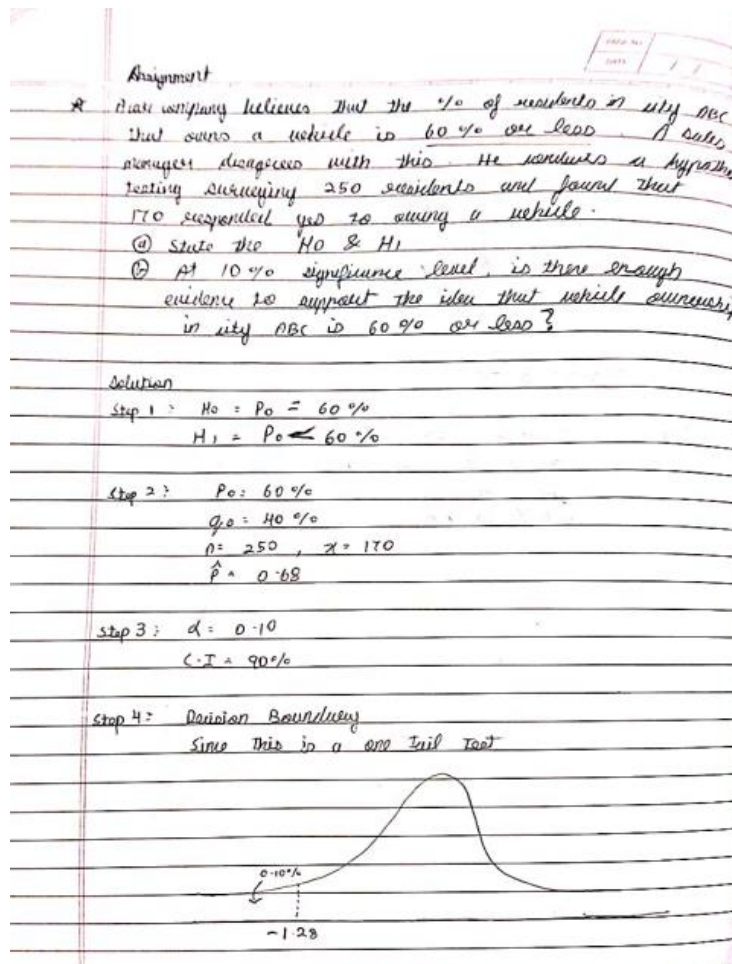 PAGE NO.
DATE / /
Assignment
believes that the % of residents in city ABC
that owns a vehicle is 60 % or less. A sales
manager disagrees with this. He conducts a hypothe
testing surveying 250 residents and found that
170 responded yes to owing a vehicle.
(a) State the H0 & H1
(b) At 10 % significance level, is there enough
evidence to support the idea that vehicle ownership
in city ABC is 60 % or less?
Solution
Step 1 : H0 = P0 = 60 %
H1 = P0 < 60 %
Step 2 : P0 = 60 %
q0 = 40 %
n = 250 , x = 170
p̂ = 0.68
Step 3 : α = 0.10
C.I = 90%
Step 4 : Decision Boundary
Since This is a one Tail Test
0.10%
-1.28